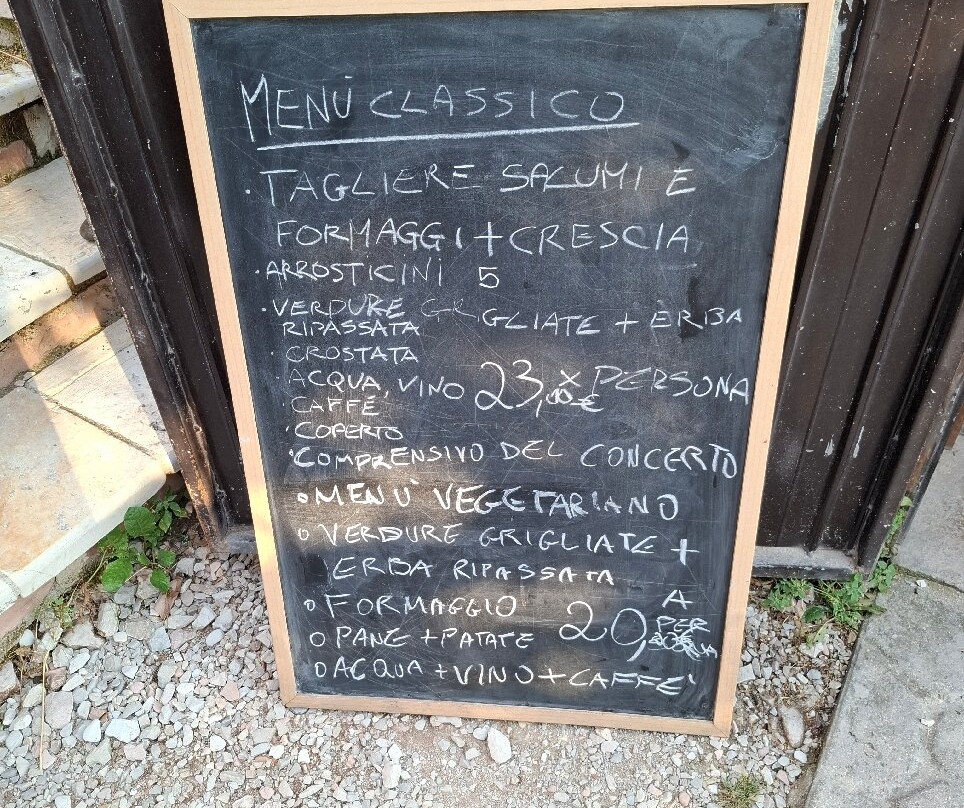 MENÙ CLASSICO
· TAGLIERE SALUMI E
FORMAGGI + CRESCIA
· ARROSTICINI 5
· VERDURE GRIGLIATE + ERBA
RIPASSATA
· CROSTATA
· ACQUA, VINO 23,00 € X PERSONA
CAFFÉ
· COPERTO
· COMPRENSIVO DEL CONCERTO
• MENÙ VEGETARIANO
o VERDURE GRIGLIATE +
ERBA RIPASSATA
o FORMAGGIO
o PANE + PATATE 20, A PER
o ACQUA + VINO + CAFFE'